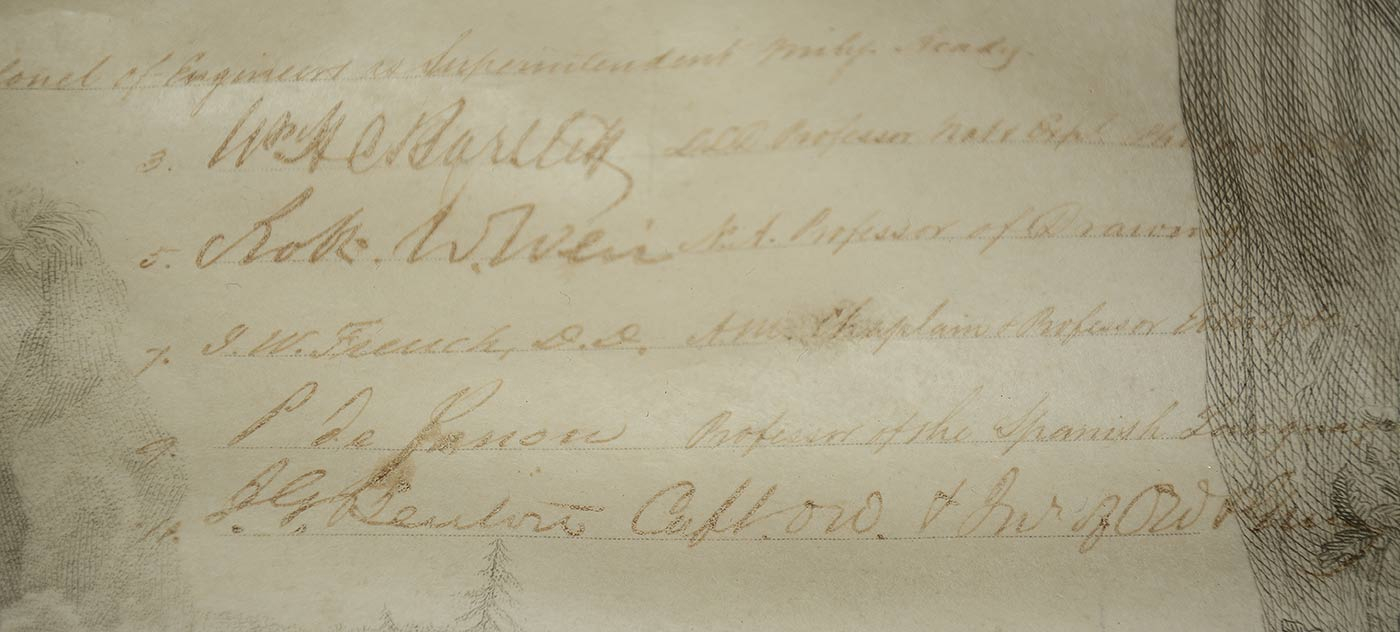 lonel of Engineers as Superintendent Mily. Acady.
3. Wm H C Bartlett LLD Professor Nat & Expl. Ph
5. Robt. W. Weir N.A. Professor of Drawing
7. J. W. French, D.D. Chaplain & Professor
9. P de Janon Professor of the Spanish Language
11. J. G. Benton Capt. Ord. & Inr of Ord &